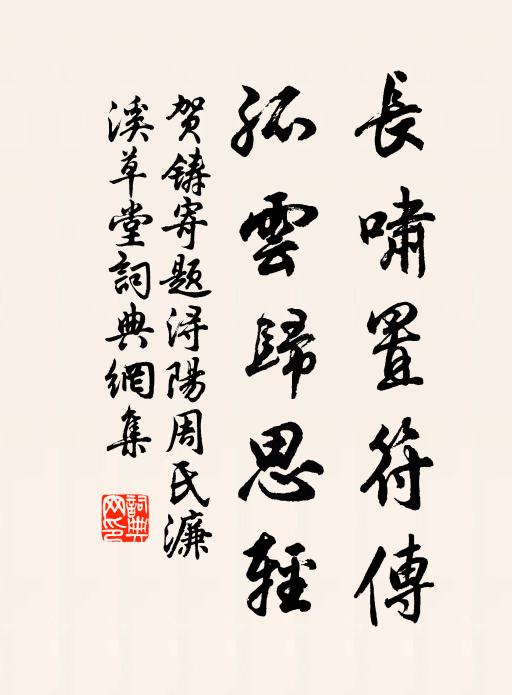 長嘯置符傳
孤雲歸思輕
贺鑄寄题浔陽周民濂
溪草堂詞典網集
詞典
网印